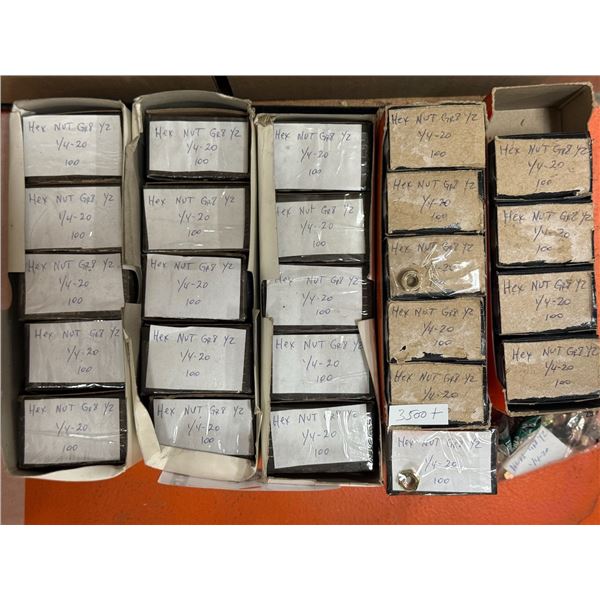 Hex NUT GR8 YZ
1/4-20
100
Hex NUT GR8 YZ
1/4-20
100
Hex NUT GR8 YZ
1/4-20
100
Hex NUT GR8 YZ
1/4-20
100
Hex NUT GR8 YZ
1/4-20
100
Hex NUT GR8 YZ
1/4-20
100
Hex NUT GR8 YZ
1/4-20
100
Hex NUT GR8 YZ
1/4-20
100
Hex NUT GR8 YZ
1/4-20
100
Hex NUT GR8 YZ
1/4-20
100
Hex NUT GR8 YZ
1/4-20
100
Hex NUT GR8 YZ
1/4-20
100
Hex NUT GR8 YZ
1/4-20
100
Hex NUT GR8 YZ
1/4-20
100
Hex NUT GR8 YZ
1/4-20
100
Hex NUT GR8 YZ
1/4-20
100
Hex NUT GR8 YZ
1/4-20
100
Hex NUT GR8 YZ
1/4-20
100
Hex NUT GR8 YZ
1/4-20
100
Hex NUT GR8 YZ
1/4-20
100
3500+
Hex NUT GR8 YZ
1/4-20
100
Hex NUT GR8 YZ
1/4-20
100
Hex NUT GR8 YZ
1/4-20
100
Hex NUT GR8 YZ
1/4-20
100
Hex NUT GR8 YZ
1/4-20
100
1/4-20